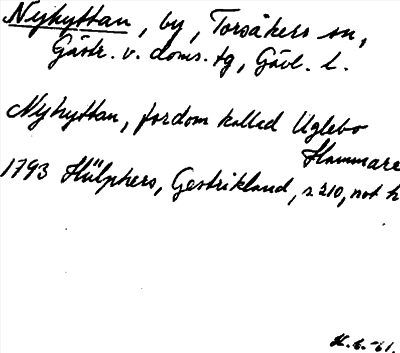 Nyhyttan, by, Torsåkers sn,
Gästr. v. doms. tg, Gävl. l.
Nyhyttan, fordom kallad Uglebo
Hammare
1793 Hülphers, Gestrikland, s 210, not h
H. G. -61.